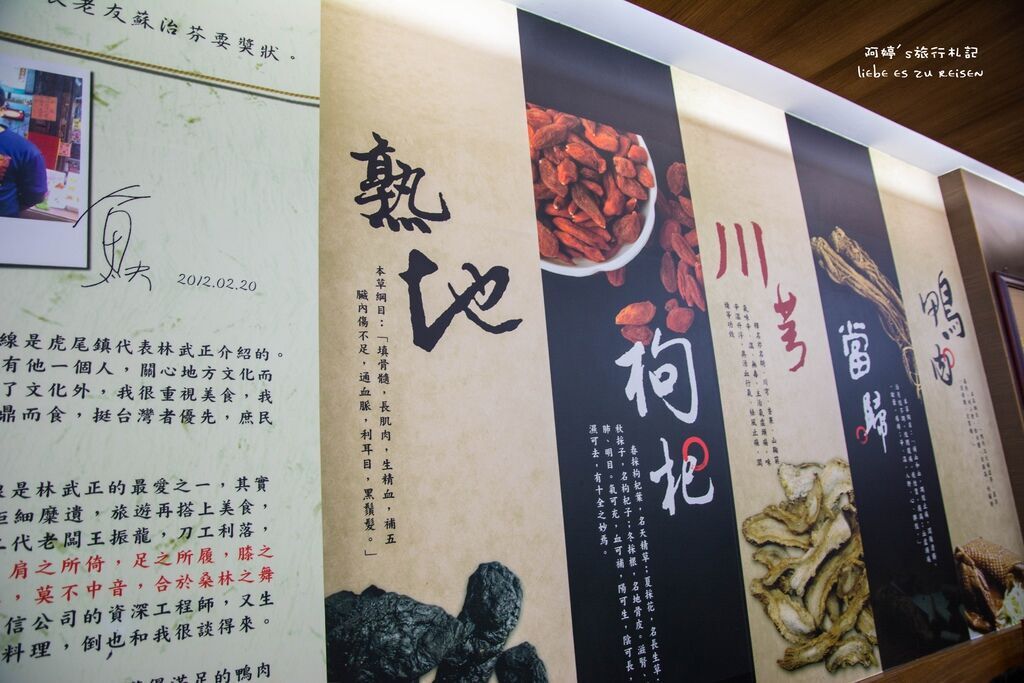 老友蘇治芬要獎狀。
2012.02.20
線是虎尾鎮代表林武正介紹的。
有他一個人，關心地方文化而
了文化外，我很重視美食，我
鼎而食，挺台灣者優先，庶民
是林武正的最愛之一，其實
細糜遺，旅遊再搭上美食，
代老闆王振龍，刀工利落，
肩之所倚，足之所履，膝之
，莫不中音，合於桑林之舞
信公司的資深工程師，又生
料理，倒也和我很談得來。
滿足的鴨肉
熟地
本草綱目：「填骨髓，長肌肉，生精血，補五
臟內傷不足，通血脈，利耳目，黑鬚髮。」
枸杞
春採枸杞葉，名天精草；夏採花，名長生草；
秋採子，名枸杞子；冬採根，名地骨皮。滋腎、
肺、明目。氣可充，血可補，陽可生，陰可長，
濕可去，有十全之妙焉。
川芎
當歸
鴨肉
阿婷's旅行札記
liebe es zu reisen